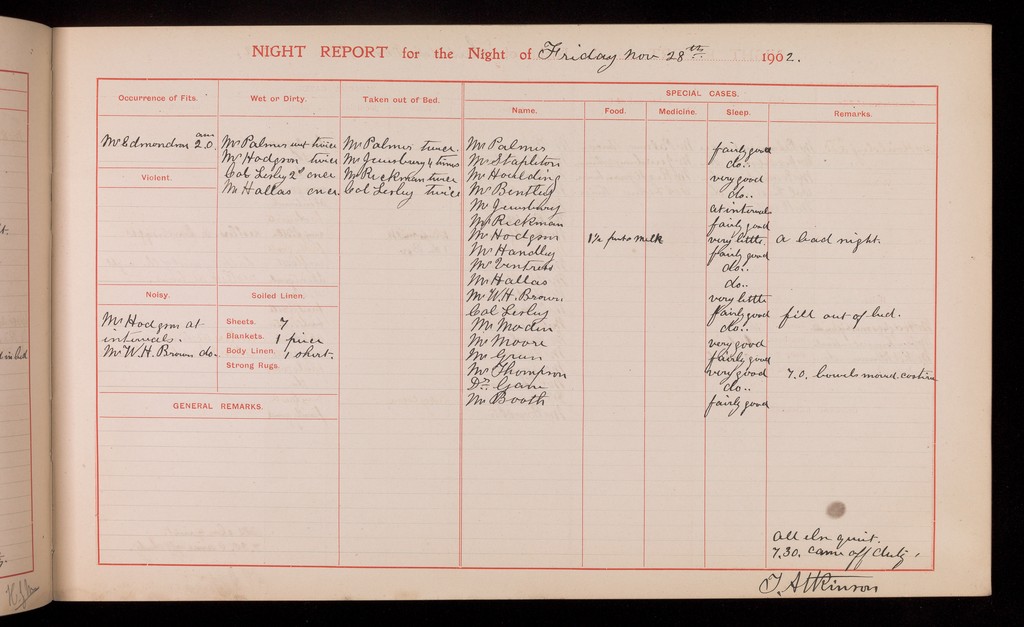 NIGHT REPORT for the Night of Friday Nov 28th 1902.
Occurrence of Fits.
am
Mr Edmondson 2.0.
Violent.
Noisy.
Mr Hodgson at
intervals.
Mr W.H. Brown do.
Wet or Dirty.
Mr Palmes wet twice
Mr Hodgson twice
Col Lesley 2d once
Mr Hallas once
Soiled Linen.
Sheets. 7
Blankets. 1 piece
Body Linen. 1 shirt.
Strong Rugs.
GENERAL REMARKS.
Taken out of Bed.
Mr Palmes twice.
Mr Jewsbury 4 times
Mr Rickman twice
Col Lesley twice
SPECIAL CASES.
Name. Food. Medicine. Sleep. Remarks.
Mr Palmes fairly good
Mr Stapleton do..
Mr Houlding very good
Mr Bentley do..
Mr Jewsbury at intervals
Mr Rickman fairly good
Mr Hodgson 1½ pints milk very little a bad night.
Mr Handley fairly good
Mr Ventress do..
Mr Hallas do..
Mr W.H. Brown very little
Col Lesley fairly good fell out of bed.
Mr Maden do..
Mr Moore very good
Mr Green fairly good
Mr Thompson very good 7.0. bowels moved.
Dr Game do..
Mr Booth fairly good
All else quiet.
7.30. came off duty,
T. Atkinson